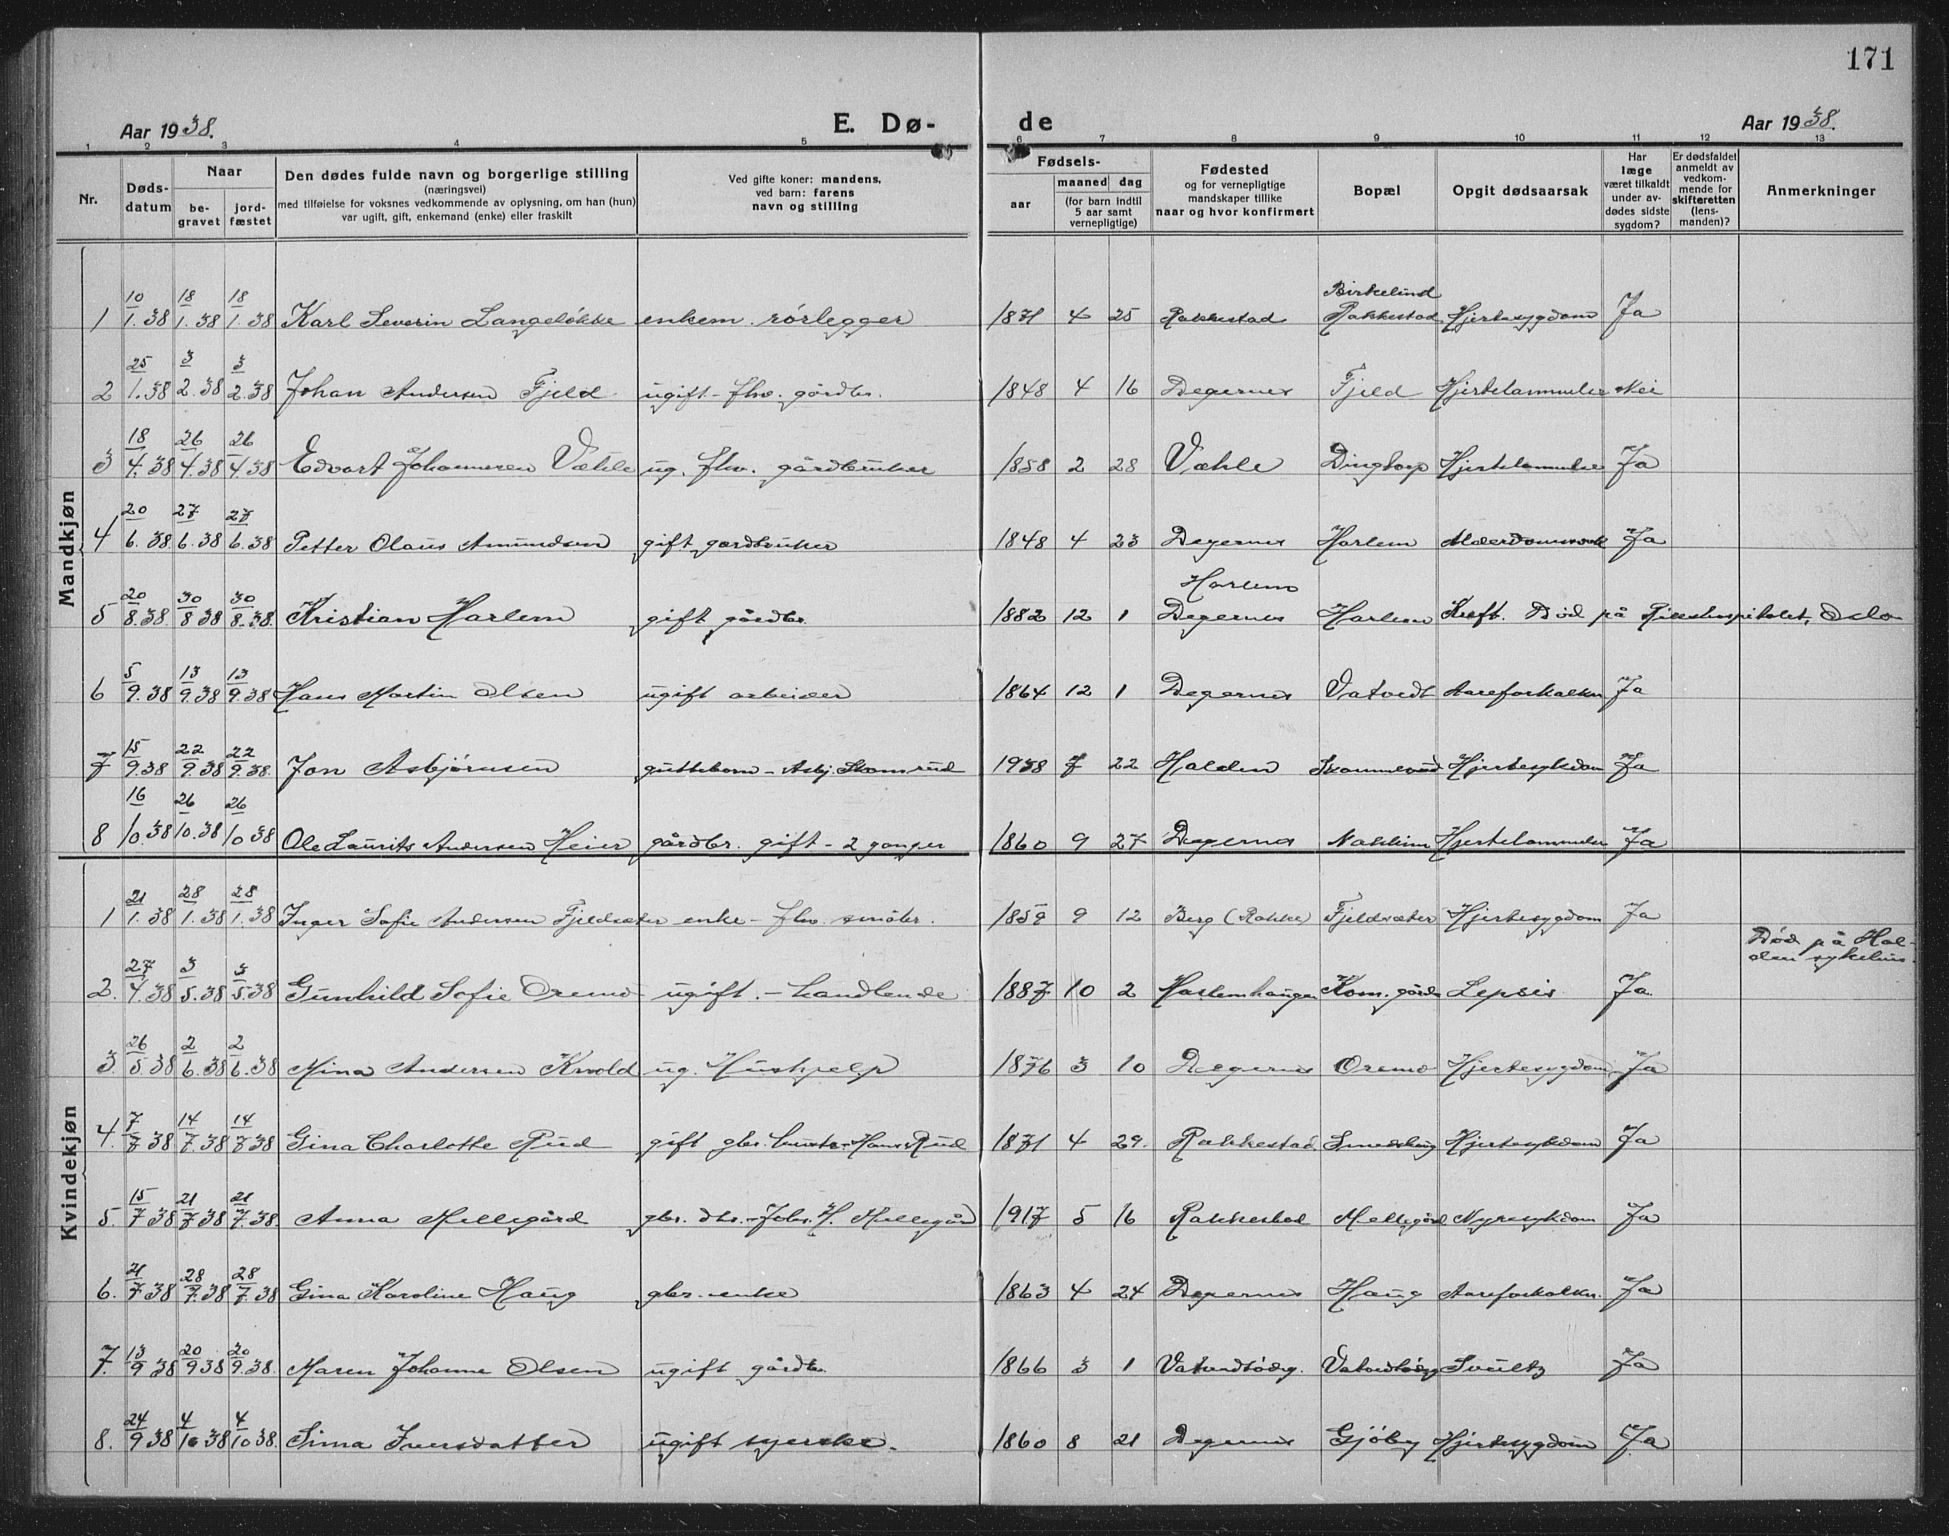 171
Aar 1938.
E. Dø-
de
Aar 1938.
1 2 3 4 5 6 7 8 9 10 11 12 13
Nr.
Døds-
datum
Naar
be-
gravet
jord-
fæstet
Den dødes fulde navn og borgerlige stilling
(næringsvei)
med tilføielse for voksnes vedkommende av oplysning, om han (hun)
var ugift, gift, enkemand (enke) eller fraskilt
Ved gifte koner: mandens,
ved barn: farens
navn og stilling
Fødsels-
aar
maaned dag
(for barn indtil
5 aar samt
vernepligtige)
Fødested
og for vernepligtige
mandskaper tillike
naar og hvor konfirmert
Bopæl
Opgit dødsaarsak
Har
læge
været tilkaldt
under av-
dødes sidste
sygdom?
Er dødsfaldet
anmeldt av
vedkom-
mende for
skifteretten
(lens-
manden)?
Anmerkninger
Mandkjøn
Birkelund
1 10/1.38 18/1.38 18/1.38 Karl Severin Langeløkke enkem. rørlegger 1871 4 25 Rakkestad Rakkestad Hjertesygdom Ja
2 25/1.38 3/2.38 3/2.38 Johan Andersen Fjeld ugift - fhv. gårdbr. 1848 4 16 Degernes Fjeld Hjertelammelse Nei
3 18/4.38 26/4.38 26/4.38 Edvart Johannesen Væhle ug. fhv. gårdbruker 1858 2 28 Væhle Dingtorp Hjertelammelse Ja
4 20/6.38 27/6.38 27/6.38 Petter Olaus Amundsen gift gardbruker 1848 4 23 Degernes Harlem Alderdomssvak Ja
Harlem
5 20/8.38 30/8.38 30/8.38 Kristian Harlem gift gårdbr. 1882 12 1 Degernes Harlem Kreft. Død på Rikshospitalet, Oslo
6 5/9.38 13/9.38 13/9.38 Hans Martin Olsen ugift arbeider 1864 12 1 Degernes Vatvedt Aareforkalkn. Ja
7 15/9.38 22/9.38 22/9.38 Jon Asbjørnsen guttebarn - Asbj. Skamrud 1938 7 22 Halden Hjertesykdom Ja
8 16/10.38 26/10.38 26/10.38 Ole Laurits Andersen Heier gårdbr. gift - 2 ganger 1860 9 27 Degernes Nakkim Hjertelammelse Ja
Kvindekjøn
1 21/1.38 28/1.38 28/1.38 Inger Sofie Andersen Fjeldsæter enke - fhv. småbr. 1859 9 12 Berg (Rakke) Fjeldsæter Hjertesygdom Ja
Død på Hal-
den sykehus.
2. 27/4.38 3/5.38 3/5.38 Gunhild Sofie Oremo ugift. - handlende 1887 10 2 Haslemhaugen Kom. gårde Lepsis Ja.
3. 26/5.38 2/6.38 2/6.38 Mina Andersen Kvold ug. Hushjelp 1876 3 10 Degernes Oremo Hjertesygdom Ja
4. 7/7.38 14/7.38 14/7.38 Gina Charlotte Rud gift gbr. hustr. Hans Rud 1871 4 29. Rakkestad Hjertesykdom Ja
5. 15/7.38 21/7.38 21/7.38. Anna Mellegård gbr. dtr. - Johs. H. Mellegård 1917 5 16 Rakkestad Mellegård Nyresykdom Ja
6. 21/7.38 28/7.38 28/7.38 Gina Karoline Haug gbr. enke 1863 4 24 Degernes Haug Aareforkalkn. Ja
7. 13/9.38 20/9.38 20/9.38. Maren Johanne Olsen ugift gårdbr. 1866 3 1 Vatvedtødeg. Vatvedtødeg Ja
8. 24/9.38 4/10.38 4/10.38. Sina Iversdatter ugift syerske. 1860 8 21 Degernes Gjøby Hjertesygdom Ja